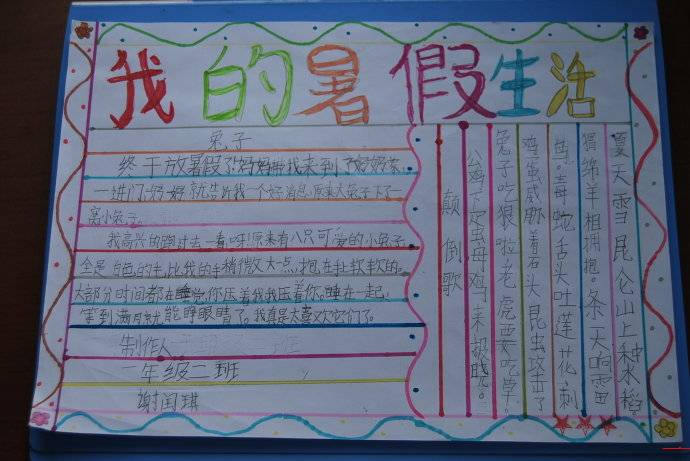 我的暑假生活
兔子
终于放暑假了!妈妈带我来到了奶奶家。
一进门奶奶就告诉我一个好消息,原来大兔子下了一
窝小兔子。
我高兴的跑过去一看,呀!原来有八只可爱的小兔子
全是白色的毛,比我的手稍微大一点,抱在手上软软的。
大部分时间都在睡觉,你压着我我压着你。睡在一起,
等到满月就能睁眼睛了。我真是太喜欢它们了。
制作人
一年级二班
谢闰琪
颠倒歌
公鸡下蛋母鸡来报晓。
兔子吃狼啦老虎要吃草。
鸡蛋威胁着石头昆虫攻击了
鱼。毒蛇舌头吐莲花,刺
猬绵羊相拥抱。冬天响雷
夏天雪昆仑山上种水稻